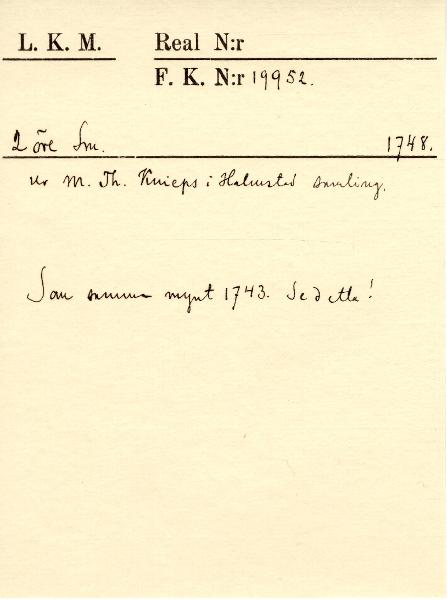 L. K. M. Real N:r
F. K. N:r 19952.
2 öre Sm. 1748.
ur M. Th. Knieps i Halmstad samling.
Som samma mynt 1743. Se detta!